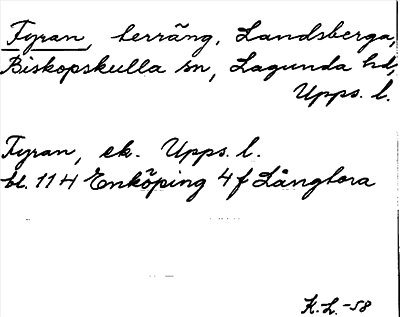 Fyran, terräng, Landsberga,
Biskopskulla sn, Lagunda hd,
Upps. l.
Fyran, ek. Upps. l.
bl. 11 H Enköping 4 f Långtora
K.L.-58